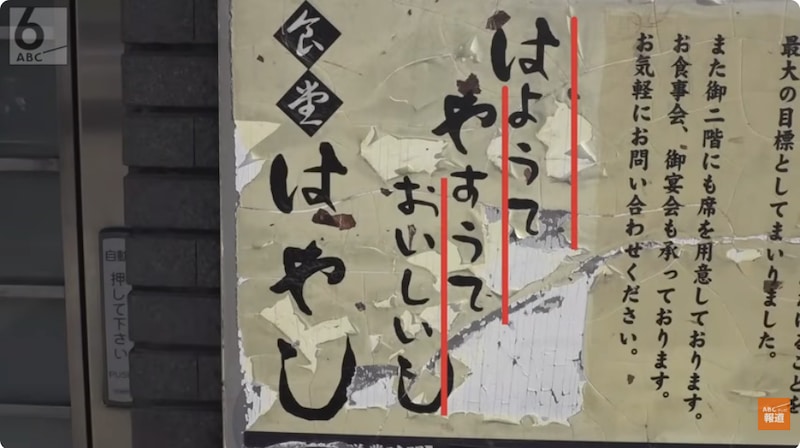 最大の目標としてまいりました。
また御二階にも席を用意しております。
お食事会、御宴会も承っております。
お気軽にお問い合わせください。
はようて
やすうて
おいしいし
食堂
はやし
自動
押して下さい
6
ABC
ABC
報道